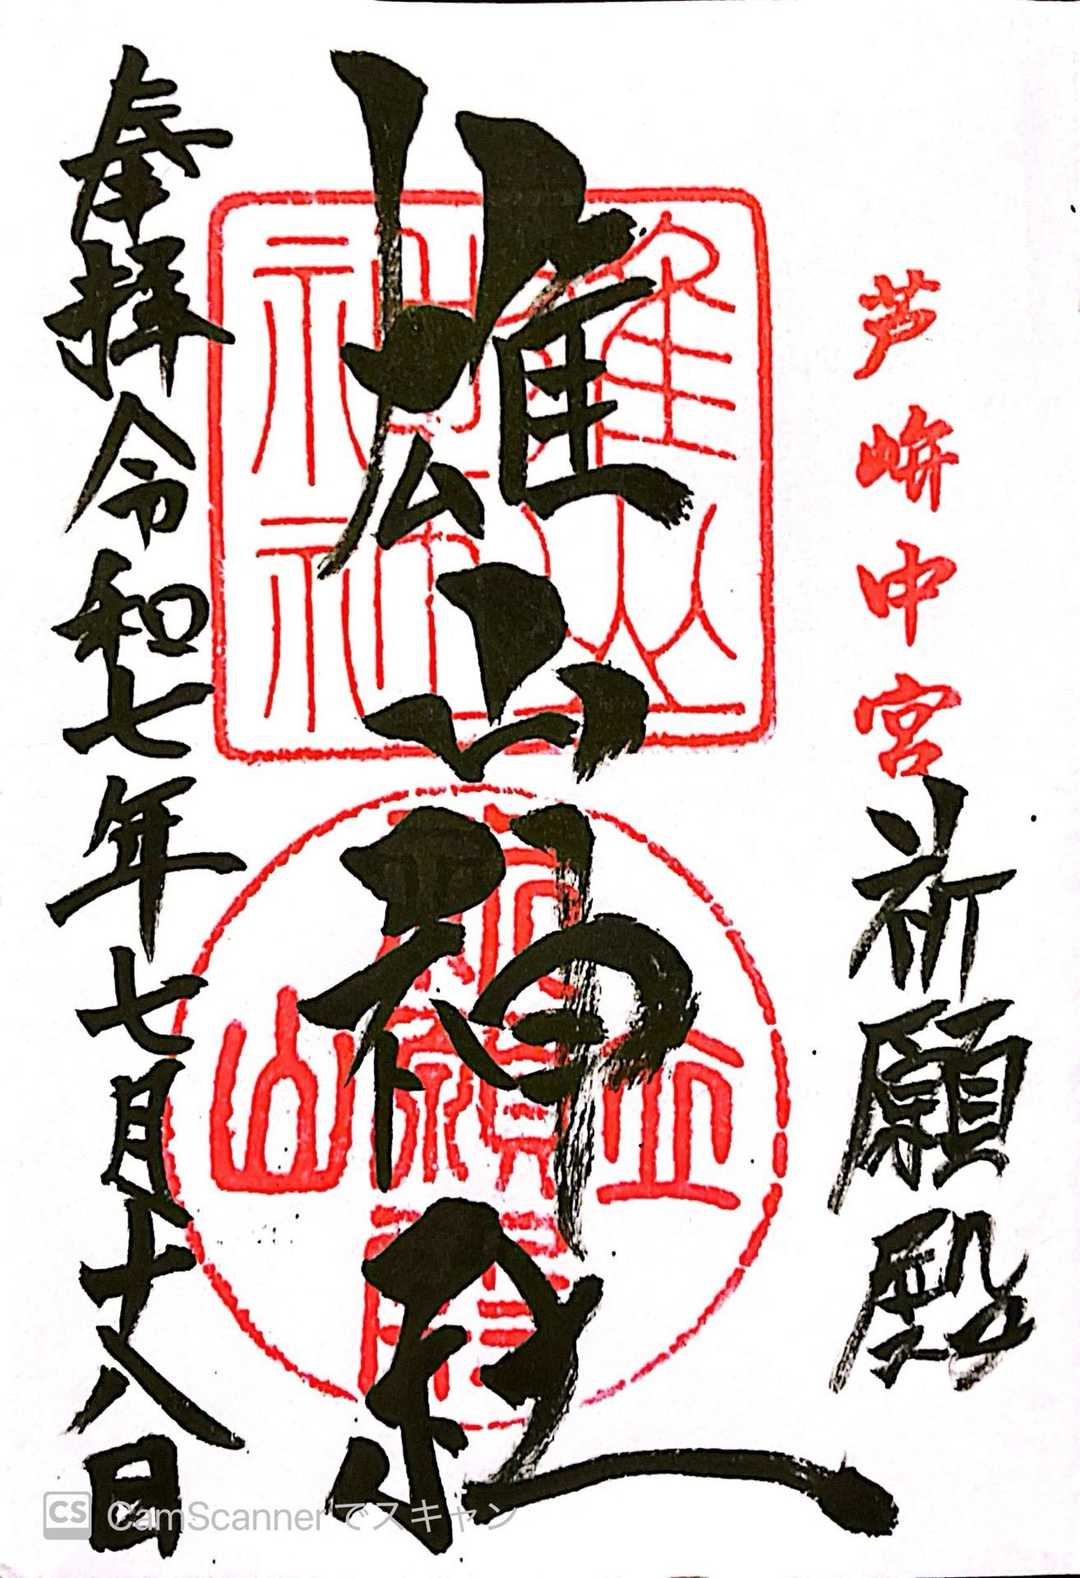 芦峅中宮
祈願殿
雄山神社
雄山
神社
立山
祈願殿
奉拝 令和七年七月十八日
CS CamScannerでスキャン